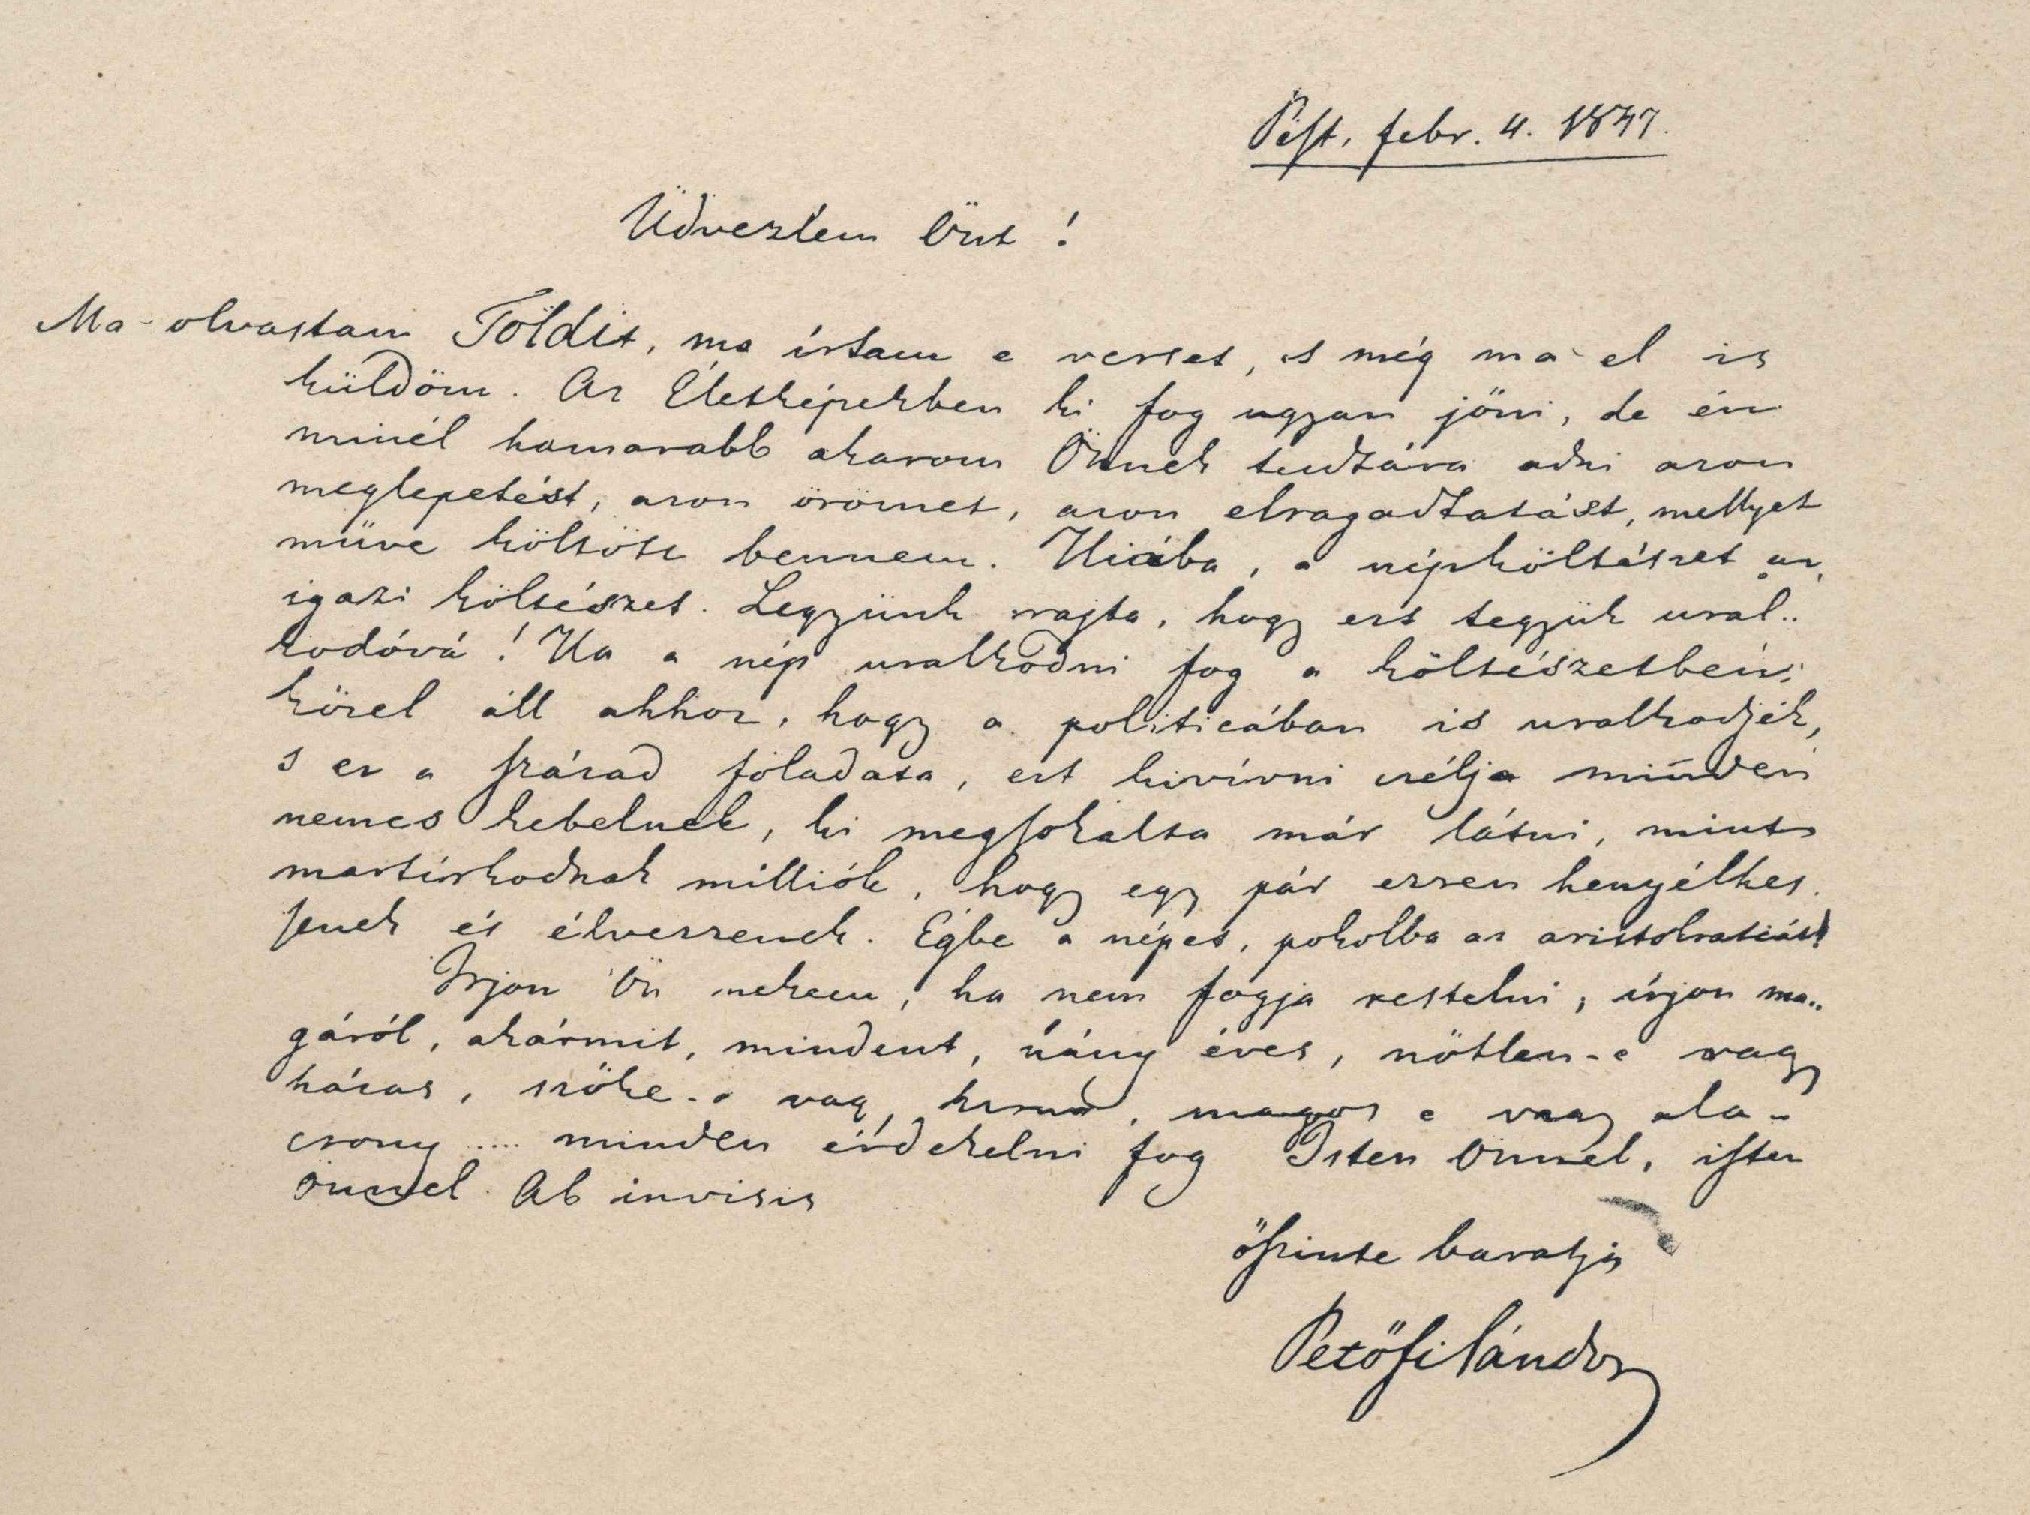 Pest, febr. 4. 1847.
Üdvezlem Önt!
Ma olvastam Toldit, ma írtam e verset, s még ma el is
küldöm. Az Életképekben ki fog ugyan jőni, de én
minél hamarabb akarom Önnek tudtára adni azon
meglepetést, azon örömet, azon elragadtatást, mellyet
műve költött bennem. Hiába, a népköltészet az
igazi költészet. Legyünk rajta, hogy ezt tegyük ural-
kodóvá! Ha a nép uralkodni fog a költészetben,
közel áll ahhoz, hogy a politicában is uralkodjék,
s ez a század föladata, ezt kivívni célja minden
nemes kebelnek, ki megsokalta már látni, mint
martirkodnak milliók, hogy egy pár ezren henyélhes-
senek és élvezzenek. Égbe a népet, pokolba az aristokratiát!
Irjon Ön nekem, ha nem fogja restelni, írjon ma-
gáról, akármit, mindent, hány éves, nőtlen-e vagy
házas, szőke-e vagy barna, magos e vagy ala-
csony ..... minden érdekelni fog Isten Önnel, isten
Önnel. Ab invisis
őszinte baratja
Petőfi Sándor